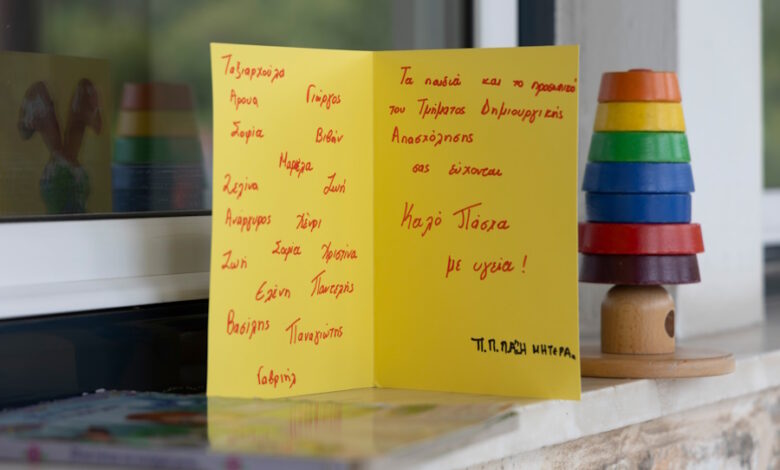 Ταξιαρχούλα
Αρουα Γιώργος
Σοφία Βιβιάν
Μαρέλα
Σελίνα Ζωή
Ανάργυρος Χένρι
Ζωή Σοφία Χριστίνα
Ελένη Παντελής
Βασίλης Παναγιώτης
Γαβριήλ
Τα παιδιά και το προσωπικό
του Τμήματος Δημιουργικής
Απασχόλησης
σας εύχονται
Καλό Πάσχα
με υγεία!
Π.Π. ΠΑΣΗ ΜΗΤΕΡΑ